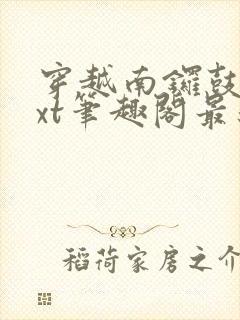 穿越南锣鼓
xt笔趣阁最
稻荷家房之介